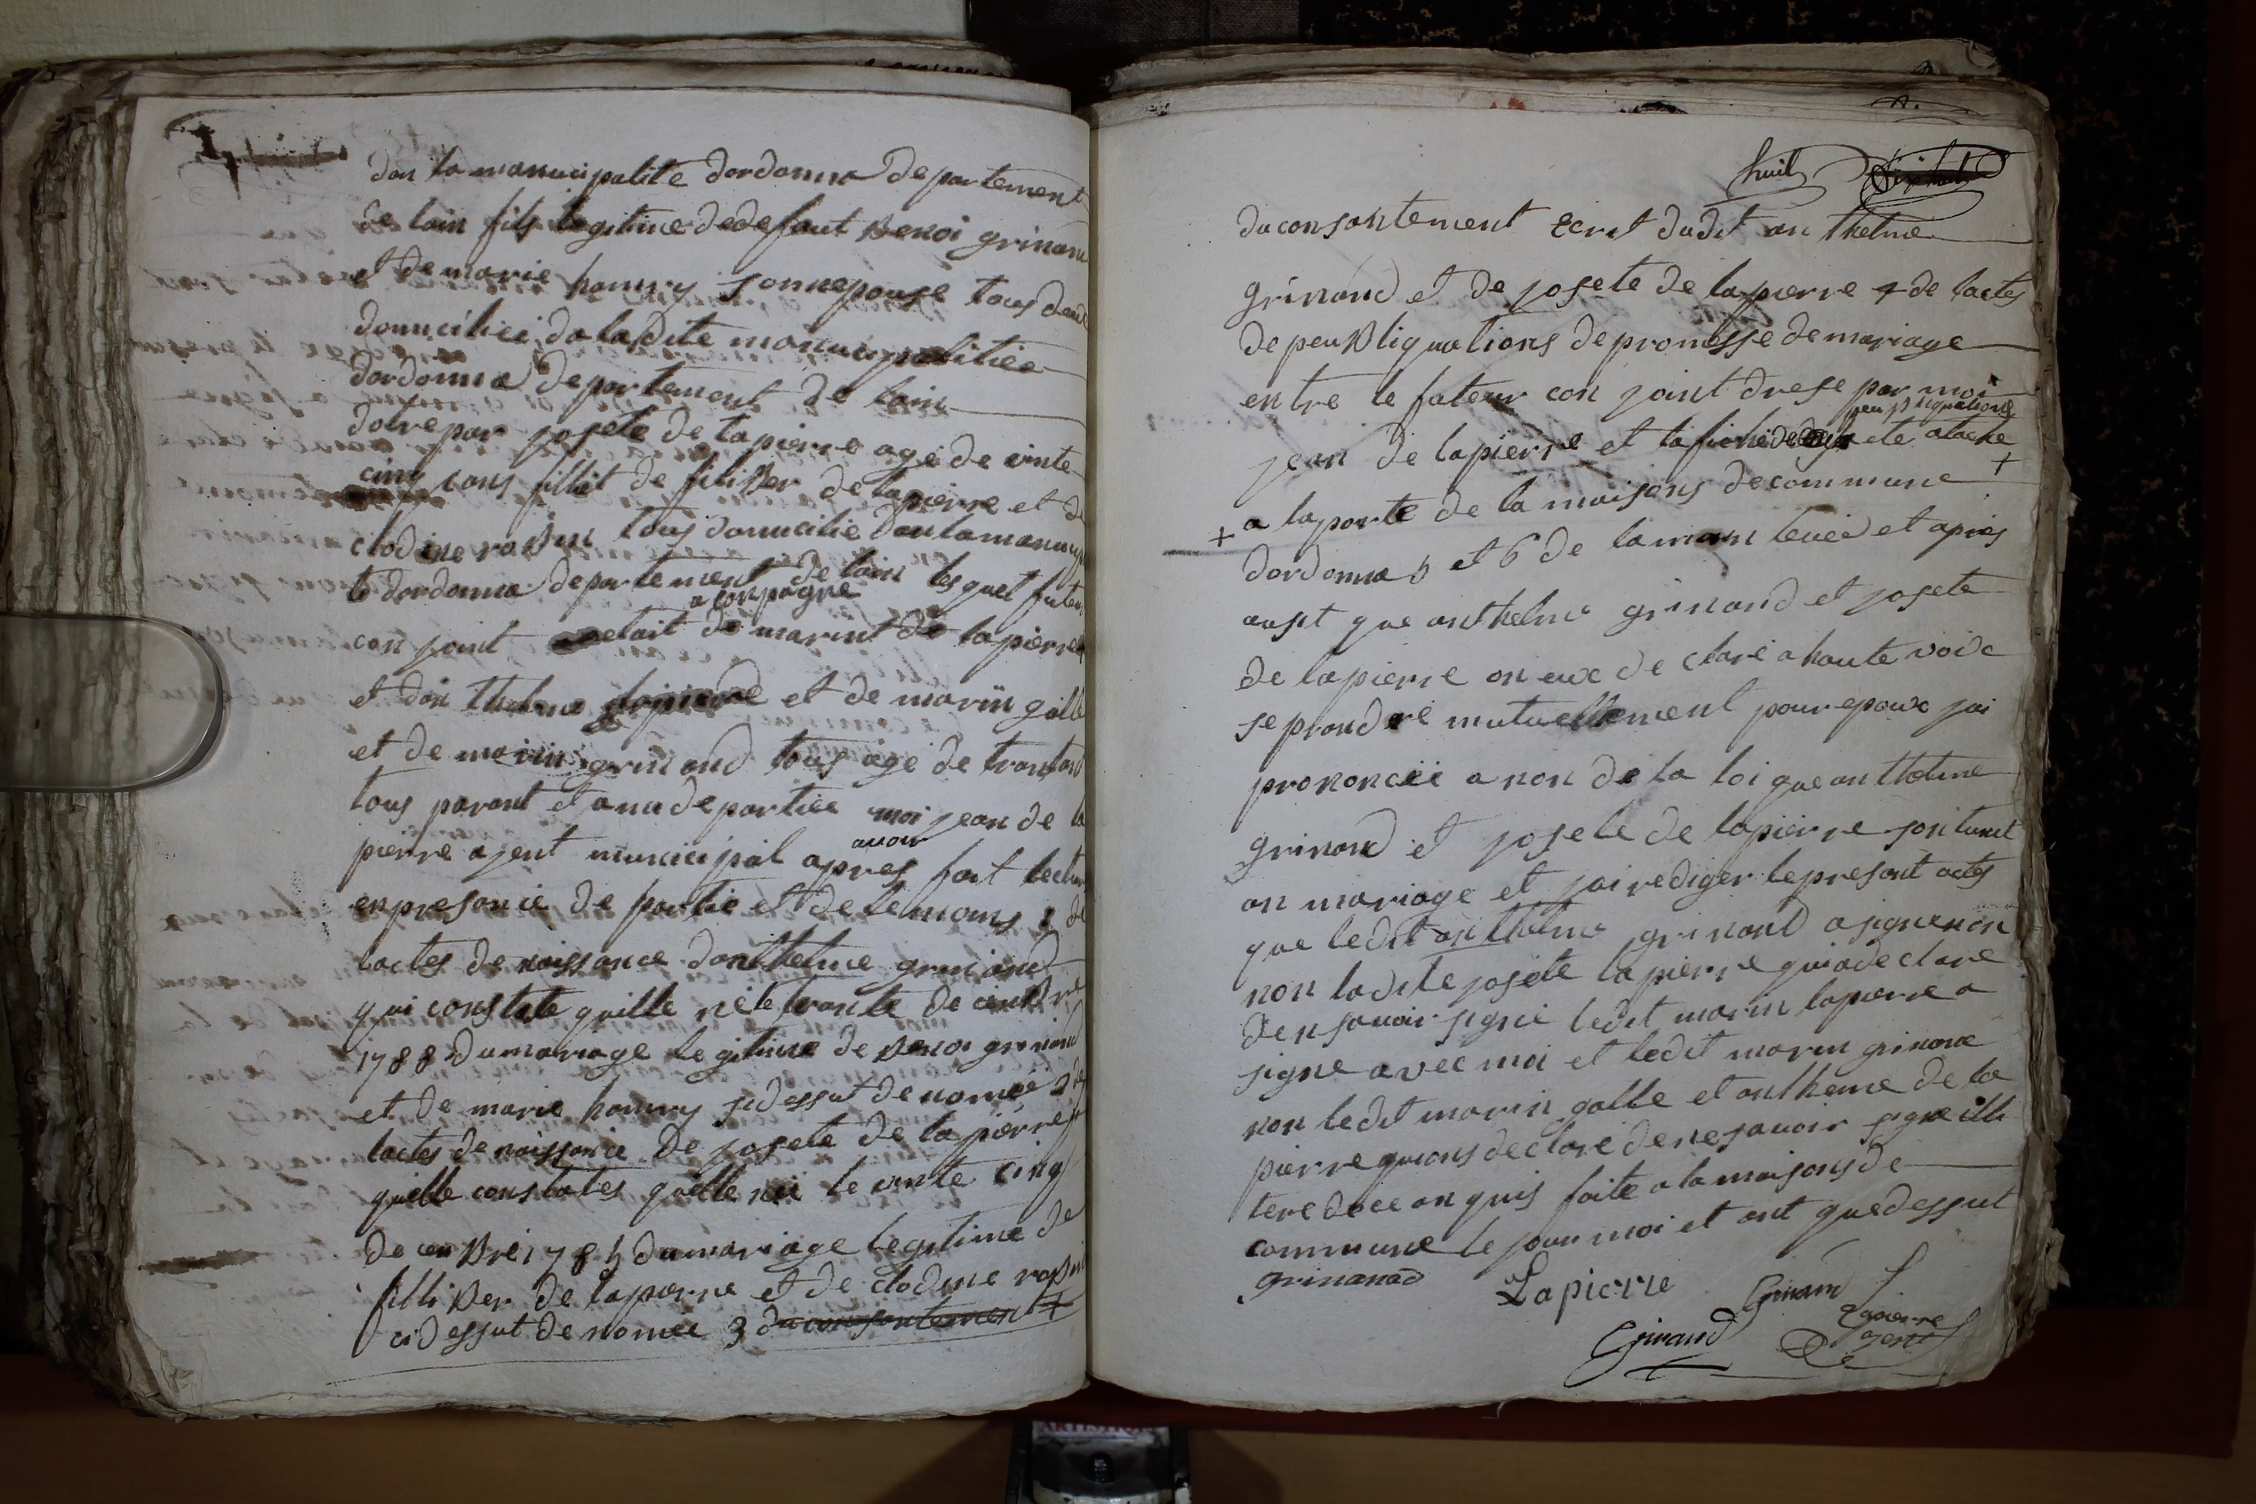 dan la manucipalité dordonna departement
de lain fils legitime dedefaut Benoi grinan
et de marie hanry sonnepouse tous deux
domicilié da ladite manucipalitiée
dordonna departement de lain
dotre par josete de lapierre agé de vinte
cinq tans fillié de filiBer de lapierre et de
clodine raBin tous domicilie dan lamanuci
té dordonna departement de lain lesquel futeur
a conpagné
con joint etait de marint de lapierre
et dan thelme lapierre et de marin galle
et de marin grinand tous agé de trantans
tous parant et amidepartiée moi jean de la
avoir
pierre ajent municipal apres fait lectur
enpresancie de partie et de temoins 1 de
lactes de naissance danthelme grinand
qui constate quille né le trante decenBre
1788 dumariage legitime de Benoi grinand
et de marie hanry sidessut denomée 2 de
lactes de naissance de josete de lapierre
quelle constates quelle née le vinte cinq
decenBre 178 dumariage legitime de
filliBer de lapierre et de clodine raBin
cidessut denomée 3 du consantement +
huit
du consantement ecrit dudit anthelme
grinand et de josete de lapierre 4 de lactes
de peuBliquations de promesse de mariage
entre le futeur con joint drese par moi
peuBliquations
jean de lapierre et lafiche de acte atache
+
+ a laporte de la maisons de commune
dordonna 5 et 6 de lamain levée et apries
ausit que anthelme grinand et josete
de lapierre on eux declaré a haute voide
se prandre mutuellement pour epoux jai
prononcéé a non de la loi que anthelme
grinand et josete de lapierre son tunit
an mariage et jai rediger lepresant actes
que ledit anthelme grinand a signe non
non ladite josete lapierre quia declare
de nsavoir signé ledit marin lapierre a
signe avec moi et ledit marin grinand
non ledit marin galle et anthelme de la
pierre quions declaré denesavoir signe illi
tere dece anquis faite a la maisons de
commune le jour moi et ant que dessut
grinanad
Lapierre
Grinand
Lapierre
ajent
Girand